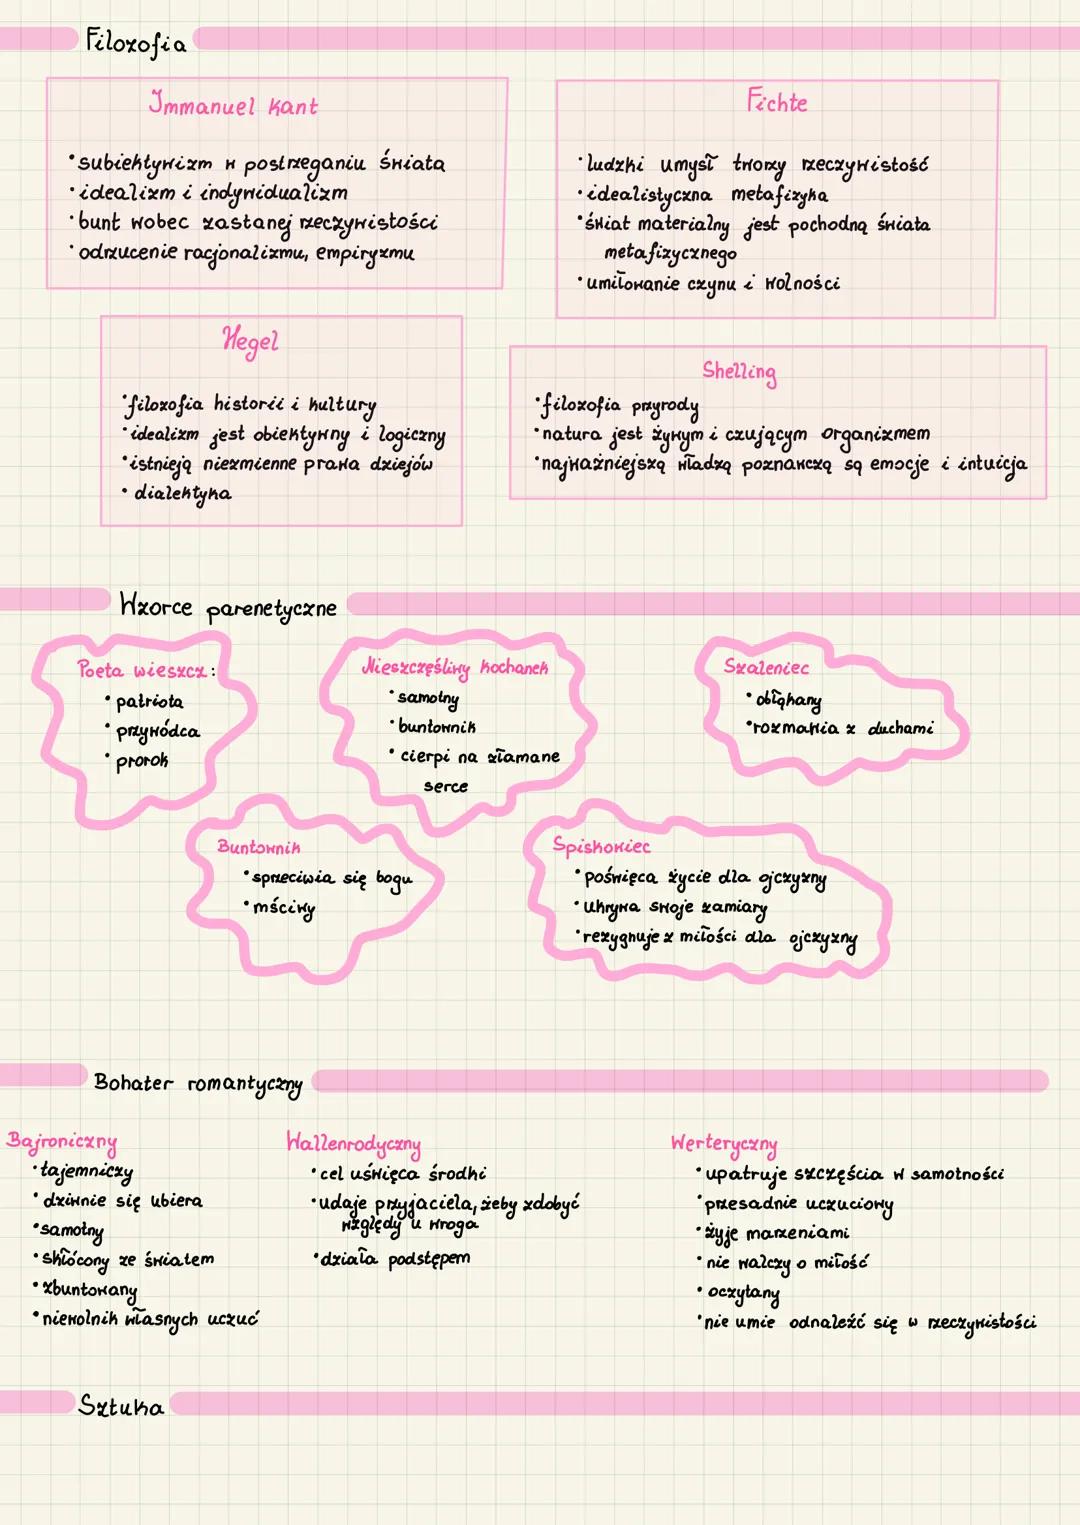 Filozofia
Immanuel Kant
•subiektywizm w postrzeganiu świata
•idealizm i indywidualizm
•bunt wobec zastanej rzeczywistości
•odrzucenie racjonalizmu, empiryzmu
Fichte
•ludzki umysł tworzy rzeczywistość
•idealistyczna metafizyka
•świat materialny jest pochodną świata
metafizycznego
•umiłowanie czynu i wolności
Hegel
•filozofia historii i kultury
•idealizm jest obiektywny i logiczny
•istnieją niezmienne prawa dziejów
•dialektyka
Shelling
•filozofia przyrody
•natura jest żywym i czującym organizmem
•najważniejszą władzą poznawczą są emocje i intuicja
Wzorce parenetyczne
Poeta wieszcz:
•patriota
•przywódca
•prorok
Nieszczęśliwy kochanek
•samotny
•buntownik
•cierpi na złamane
serce
Szaleniec
•obłąkany
•rozmawia z duchami
Buntownik
•sprzeciwia się bogu
•mściwy
Spiskowiec
•poświęca życie dla ojczyzny
•ukrywa swoje zamiary
•rezygnuje z miłości dla ojczyzny
Bohater romantyczny
Bajroniczny
•tajemniczy
•dziwnie się ubiera
•samotny
•skłócony ze światem
•zbuntowany
•niewolnik własnych uczuć
Wallenrodyczny
•cel uświęca środki
•udaje przyjaciela, żeby zdobyć
względy u wroga
•działa podstępem
Werteryczny
•upatruje szczęścia w samotności
•przesadnie uczuciowy
•żyje marzeniami
•nie walczy o miłość
•oczytany
•nie umie odnaleźć się w rzeczywistości
Sztuka